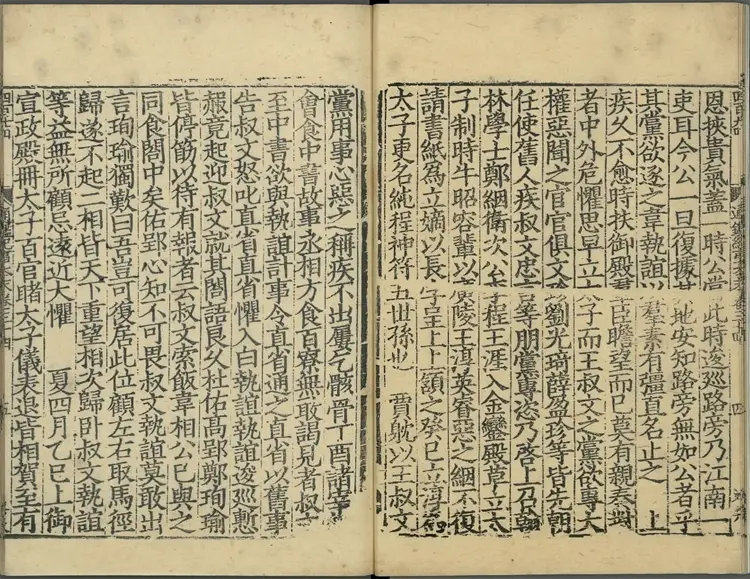 恩挾貴氣蓋一時公當此時逡巡路旁乃江南一
吏耳今公一旦復據其地安知路旁無如公者乎
其黨欲逐之韋執誼以羣素有彊直名止之　上
疾久不愈時扶御殿羣臣瞻望而已莫有親奏對
者中外危懼思早立太子而王叔文之黨欲專大
權惡聞之宦官俱文珍劉光琦薛盈珍等皆先朝
任使舊人疾叔文忠言等朋黨專恣乃啓上召翰
林學士鄭絪衛次公李程王涯入金鑾殿草立太
子制時牛昭容輩以廣陵王淳英睿惡之絪不復
請書紙為立嫡以長字呈上上頷之癸巳立淳為
太子更名純程神符五世孫也　賈躭以王叔文
黨用事心惡之稱疾不出屢乞骸骨丁酉諸宰
會食中書故事丞相方食百寮無敢謁見者叔文
至中書欲與執誼計事令直省通之直省以舊事
告叔文怒叱直省直省懼入白執誼執誼逡巡慙
赧竟起迎叔文就其閤語良久杜佑高郢鄭珣瑜
皆停筯以待有報者云叔文索飯韋相公已與之
同食閤中矣佑郢心知不可畏叔文執誼莫敢出
言珣瑜獨歎曰吾豈可復居此位顧左右取馬徑
歸遂不起二相皆天下重望相次歸卧叔文執誼
等益無所顧忌遠近大懼　夏四月乙巳上御
宣政殿冊太子百官睹太子儀表退皆相賀至有